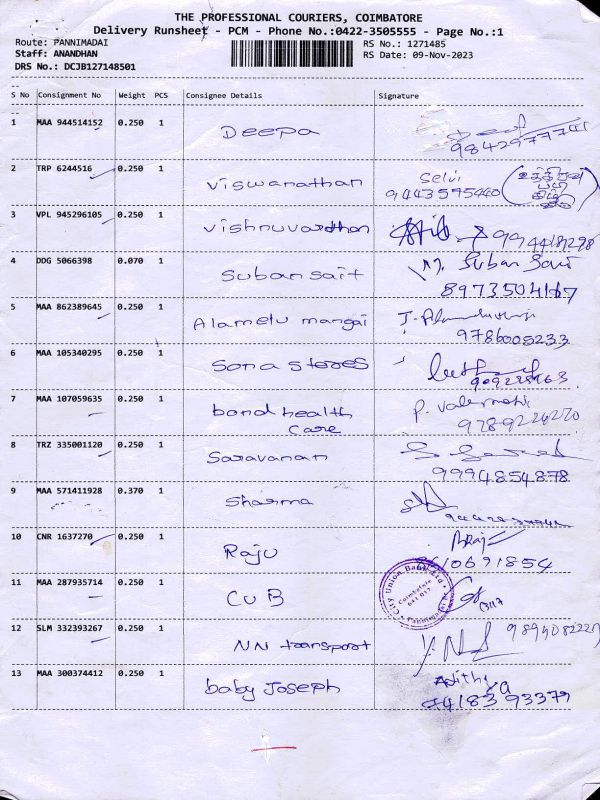 THE PROFESSIONAL COURIERS, COIMBATORE
Delivery Runsheet - PCM - Phone No.:0422-3505555 - Page No.:1
Route: PANNIMADAI
RS No.: 1271485
Staff: ANANDHAN
RS Date: 09-Nov-2023
DRS No.: DCJB127148501
S No Consignment No Weight PCS Consignee Details Signature
1 MAA 944514152 0.250 1 Deepa
2 TRP 6244516 0.250 1 Viswanathan Selvi
9443595440
3 VPL 945296105 0.250 1 Vishnuvardhan 9944187298
4 DDG 5066398 0.070 1 Suban sait Suban Sait
8973504167
5 MAA 862389645 0.250 1 Alamelu mangai
9786008233
6 MAA 105340295 0.250 1 Sona stores
7 MAA 107059635 0.250 1 bond health
care
9789226270
8 TRZ 335001120 0.250 1 Saravanan
9994854878
9 MAA 571411928 0.370 1 Sharma
10 CNR 1637270 0.250 1 Raju
11 MAA 287935714 0.250 1 CUB
City Union Bank Ltd.
Coimbatore
641 017
12 SLM 332393267 0.250 1 NN transport
13 MAA 300374412 0.250 1 baby Joseph Adithya
9418393379